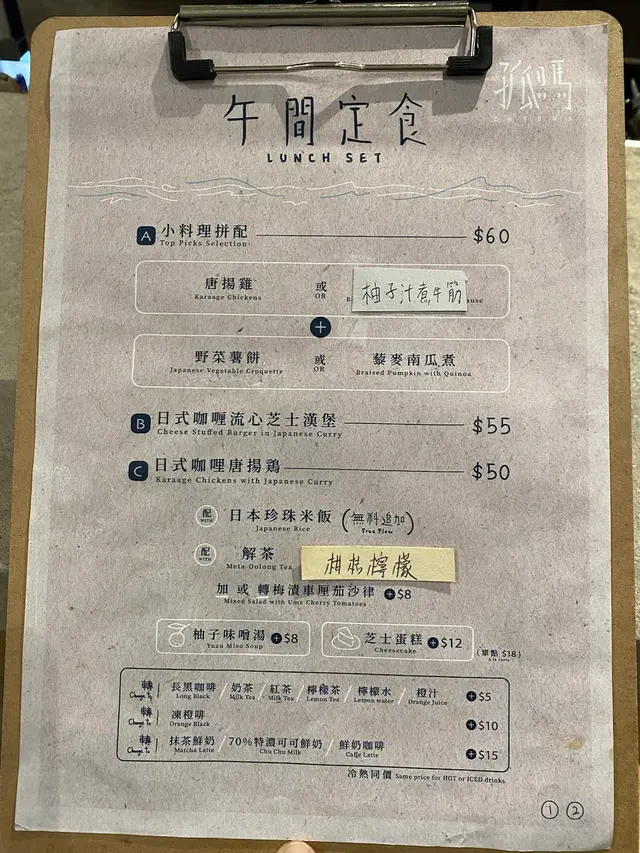 孤嗎
午間定食
LUNCH SET
A 小料理拼配 $60
Top Picks Selection
唐揚雞 或 柚子汁煮牛筋
Karaage Chickens OR
+
野菜薯餅 或 藜麥南瓜煮
Japanese Vegetable Croquette OR Braised Pumpkin with Quinoa
B 日式咖喱流心芝士漢堡 $55
Cheese Stuffed Burger in Japanese Curry
C 日式咖哩唐揚鶏 $50
Karaage Chickens with Japanese Curry
配 WITH 日本珍珠米飯 (無料追加)
Japanese Rice Free Flow
配 WITH 解茶 柑桔檸檬
Meta-Oolong Tea
加 或 轉梅漬車厘茄沙律 +$8
Mixed Salad with Ume Cherry Tomatoes
柚子味噌湯 +$8 芝士蛋糕 +$12 (單點 $18)
Yuzu Miso Soup Cheesecake A la carte
轉 長黑咖啡 / 奶茶 / 紅茶 / 檸檬茶 / 檸檬水 / 橙汁 +$5
Change To Long Black Milk Tea Milk Tea Lemon Tea Lemon water Orange Juice
轉 凍橙啡 +$10
Change To Orange Black
轉 抹茶鮮奶 / 70%特濃可可鮮奶 / 鮮奶咖啡 +$15
Change To Matcha Latte Chu Chu Milk Caffe Latte
冷熱同價 Same price for HOT or ICED drinks
① ②